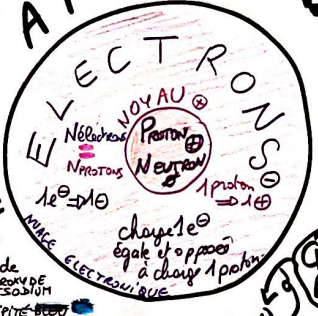 A
ELECTRONS ⊖
NOYAU ⊕
PROTON ⊕
NEUTRON
Nélectrons
=
NPROTONS
1e⊖ ⇒ 1⊖
1 proton
⇒ 1⊕
charge 1e⊖
égale et opposé
à charge 1 proton
NUAGE ELECTRONIQUE
de
SODIUM
BLEU